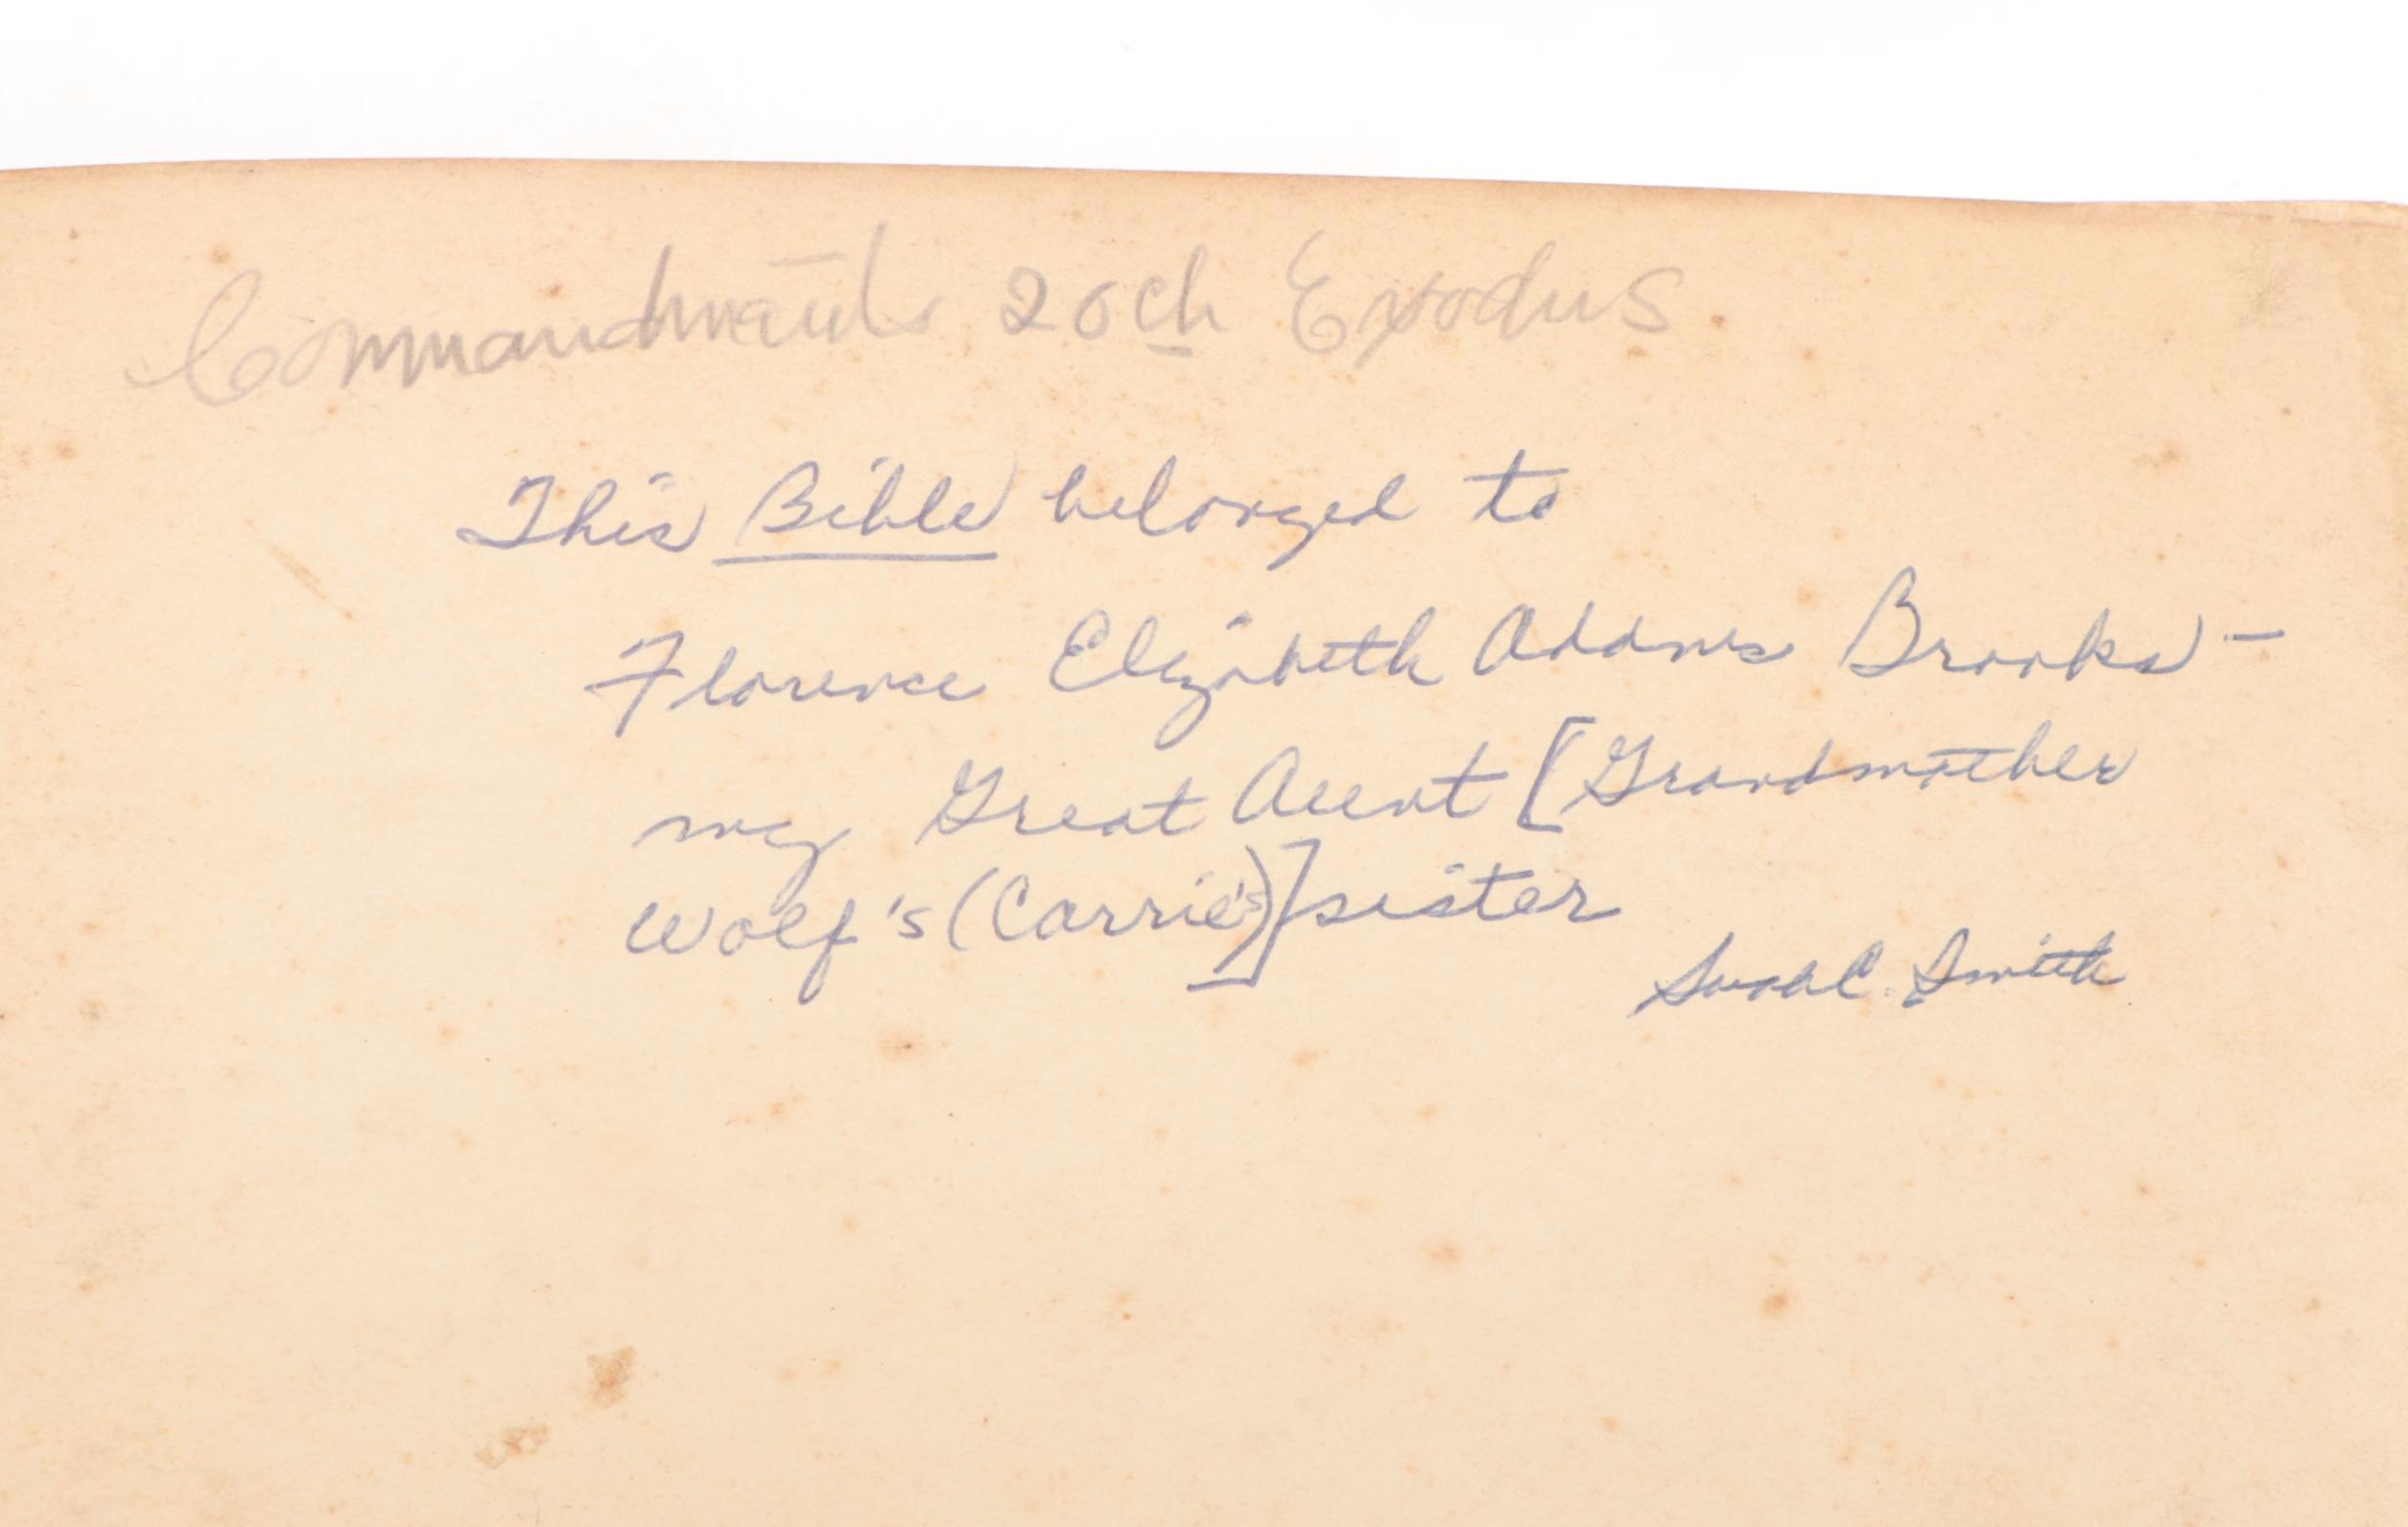 Commandments 20ch Exodus
This Bible belonged to
Florence Elizabeth Adams Brooks -
my Great Aunt [Grandmother
Wolf's (Carrie's)] sister
C. Smith